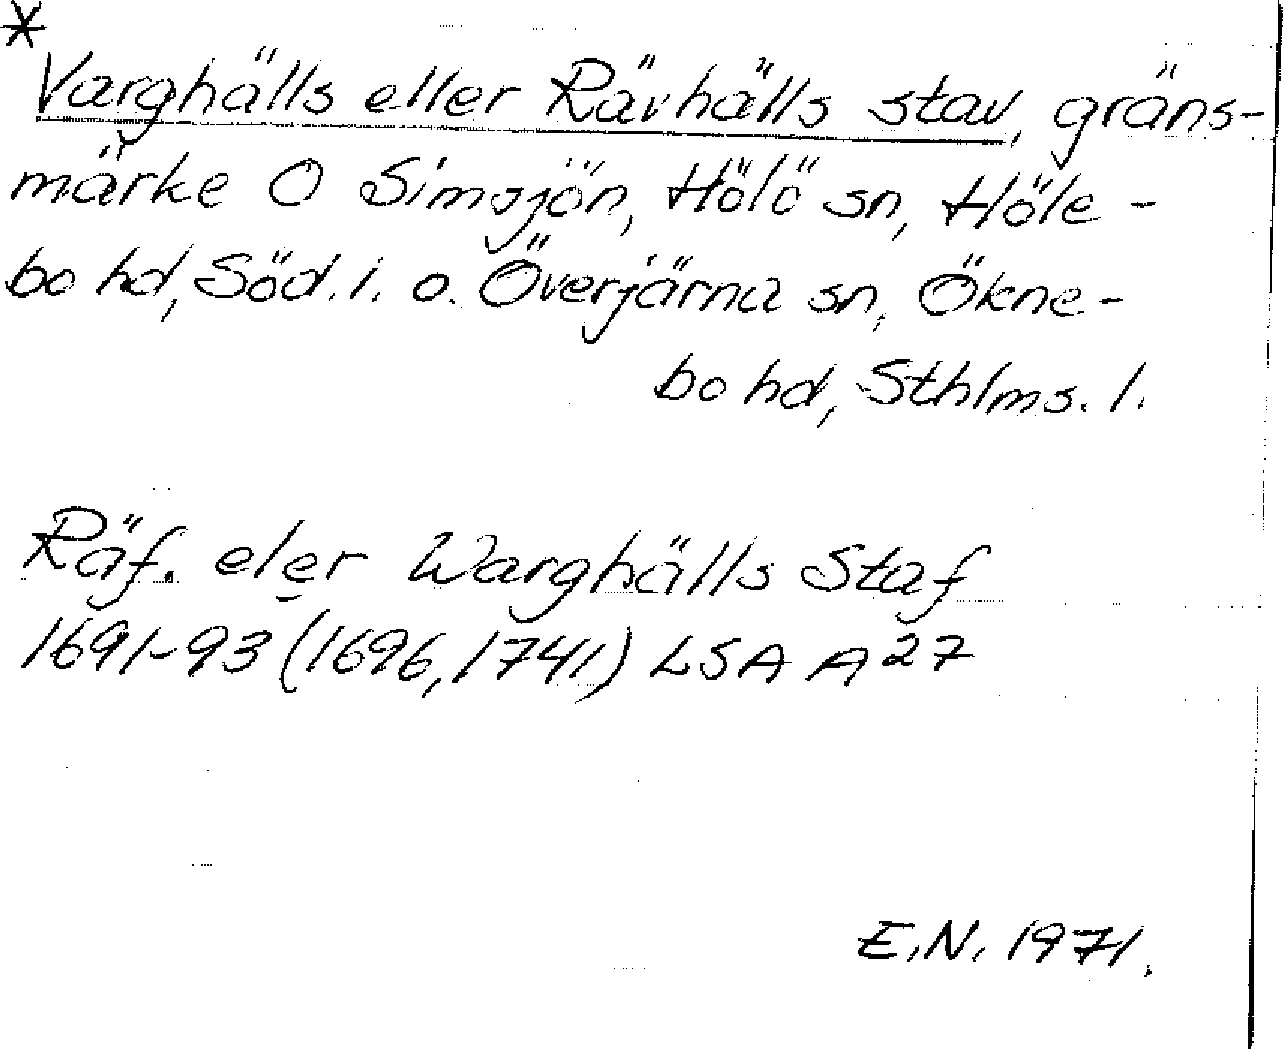 *
Varghälls eller Rävhälls stav, gräns-
märke O Simsjön, Hölö sn, Höle-
bo hd, Söd. l. o. Överjärna sn, Ökne-
bo hd, Sthlms. l.
Räf. eler Warghälls Staf
1691-93 (1696, 1741) LSA A 27
E.N. 1971.